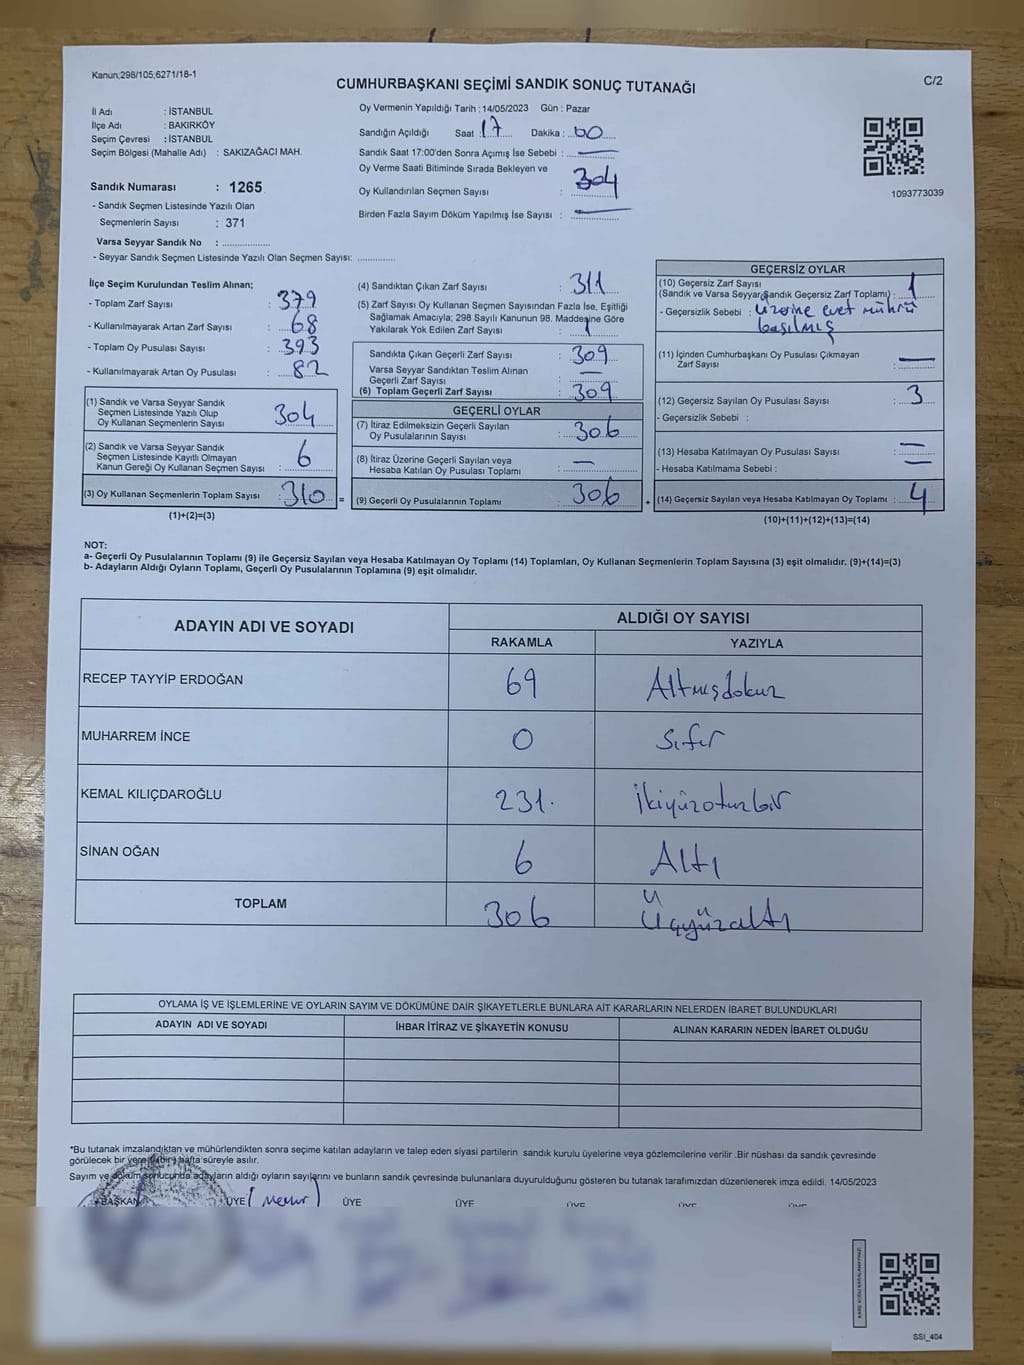 Kanun;298/105;6271/18-1
CUMHURBAŞKANI SEÇİMİ SANDIK SONUÇ TUTANAĞI
C/2
İl Adı : İSTANBUL
İlçe Adı : BAKIRKÖY
Seçim Çevresi : İSTANBUL
Seçim Bölgesi (Mahalle Adı) : SAKIZAĞACI MAH.
Sandık Numarası : 1265
- Sandık Seçmen Listesinde Yazılı Olan
Seçmenlerin Sayısı : 371
Varsa Seyyar Sandık No : ................
- Seyyar Sandık Seçmen Listesinde Yazılı Olan Seçmen Sayısı: .............
Oy Vermenin Yapıldığı Tarih : 14/05/2023 Gün : Pazar
Sandığın Açıldığı Saat : 17 Dakika : 00
Sandık Saat 17:00'den Sonra Açımış İse Sebebi : —
Oy Verme Saati Bitiminde Sırada Bekleyen ve
Oy Kullandırılan Seçmen Sayısı : 304
Birden Fazla Sayım Döküm Yapılmış İse Sayısı : —
1093773039
İlçe Seçim Kurulundan Teslim Alınan;
- Toplam Zarf Sayısı : 379
- Kullanılmayarak Artan Zarf Sayısı : 68
- Toplam Oy Pusulası Sayısı : 393
- Kullanılmayarak Artan Oy Pusulası : 82
(1) Sandık ve Varsa Seyyar Sandık
Seçmen Listesinde Yazılı Olup
Oy Kullanan Seçmenlerin Sayısı 304
(2) Sandık ve Varsa Seyyar Sandık
Seçmen Listesinde Kayıtlı Olmayan
Kanun Gereği Oy Kullanan Seçmen Sayısı : 6
(3) Oy Kullanan Seçmenlerin Toplam Sayısı : 310 =
(1)+(2)=(3)
(4) Sandıktan Çıkan Zarf Sayısı : 311
(5) Zarf Sayısı Oy Kullanan Seçmen Sayısından Fazla İse, Eşitliği
Sağlamak Amacıyla; 298 Sayılı Kanunun 98. Maddesine Göre
Yakılarak Yok Edilen Zarf Sayısı : 1
Sandıkta Çıkan Geçerli Zarf Sayısı : 309
Varsa Seyyar Sandıktan Teslim Alınan
Geçerli Zarf Sayısı : —
(6) Toplam Geçerli Zarf Sayısı : 309
GEÇERLİ OYLAR
(7) İtiraz Edilmeksizin Geçerli Sayılan
Oy Pusulalarının Sayısı : 306
(8) İtiraz Üzerine Geçerli Sayılan veya
Hesaba Katılan Oy Pusulası Toplamı : —
(9) Geçerli Oy Pusulalarının Toplamı : 306 +
GEÇERSİZ OYLAR
(10) Geçersiz Zarf Sayısı
(Sandık ve Varsa Seyyar Sandık Geçersiz Zarf Toplamı) : 1
- Geçersizlik Sebebi : üzerine evet mührü
basılmış
(11) İçinden Cumhurbaşkanı Oy Pusulası Çıkmayan
Zarf Sayısı : —
(12) Geçersiz Sayılan Oy Pusulası Sayısı : 3
- Geçersizlik Sebebi :
(13) Hesaba Katılmayan Oy Pusulası Sayısı : —
- Hesaba Katılmama Sebebi : —
(14) Geçersiz Sayılan veya Hesaba Katılmayan Oy Toplamı : 4
(10)+(11)+(12)+(13)=(14)
NOT:
a- Geçerli Oy Pusulalarının Toplamı (9) ile Geçersiz Sayılan veya Hesaba Katılmayan Oy Toplamı (14) Toplamları, Oy Kullanan Seçmenlerin Toplam Sayısına (3) eşit olmalıdır. (9)+(14)=(3)
b- Adayların Aldığı Oyların Toplamı, Geçerli Oy Pusulalarının Toplamına (9) eşit olmalıdır.
ADAYIN ADI VE SOYADI
ALDIĞI OY SAYISI
RAKAMLA YAZIYLA
RECEP TAYYİP ERDOĞAN 69 Altmışdokuz
MUHARREM İNCE 0 Sıfır
KEMAL KILIÇDAROĞLU 231. İkiyüzotuzbir
SİNAN OĞAN 6 Altı
TOPLAM 306 Üçyüzaltı
OYLAMA İŞ VE İŞLEMLERİNE VE OYLARIN SAYIM VE DÖKÜMÜNE DAİR ŞİKAYETLERLE BUNLARA AİT KARARLARIN NELERDEN İBARET BULUNDUKLARI
ADAYIN ADI VE SOYADI İHBAR İTİRAZ VE ŞİKAYETİN KONUSU ALINAN KARARIN NEDEN İBARET OLDUĞU
*Bu tutanak imzalandıktan ve mühürlendikten sonra seçime katılan adayların ve talep eden siyasi partilerin sandık kurulu üyelerine veya gözlemcilerine verilir .Bir nüshası da sandık çevresinde
görülecek bir yere dahi 1 hafta süreyle asılır.
Sayım ve döküm sonucunda adayların aldığı oyların sayılarını ve bunların sandık çevresinde bulunanlara duyurulduğunu gösteren bu tutanak tarafımızdan düzenlenerek imza edildi. 14/05/2023
BAŞKAN ÜYE (memur) ÜYE ÜYE ÜYE ÜYE ÜYE
SSI_404